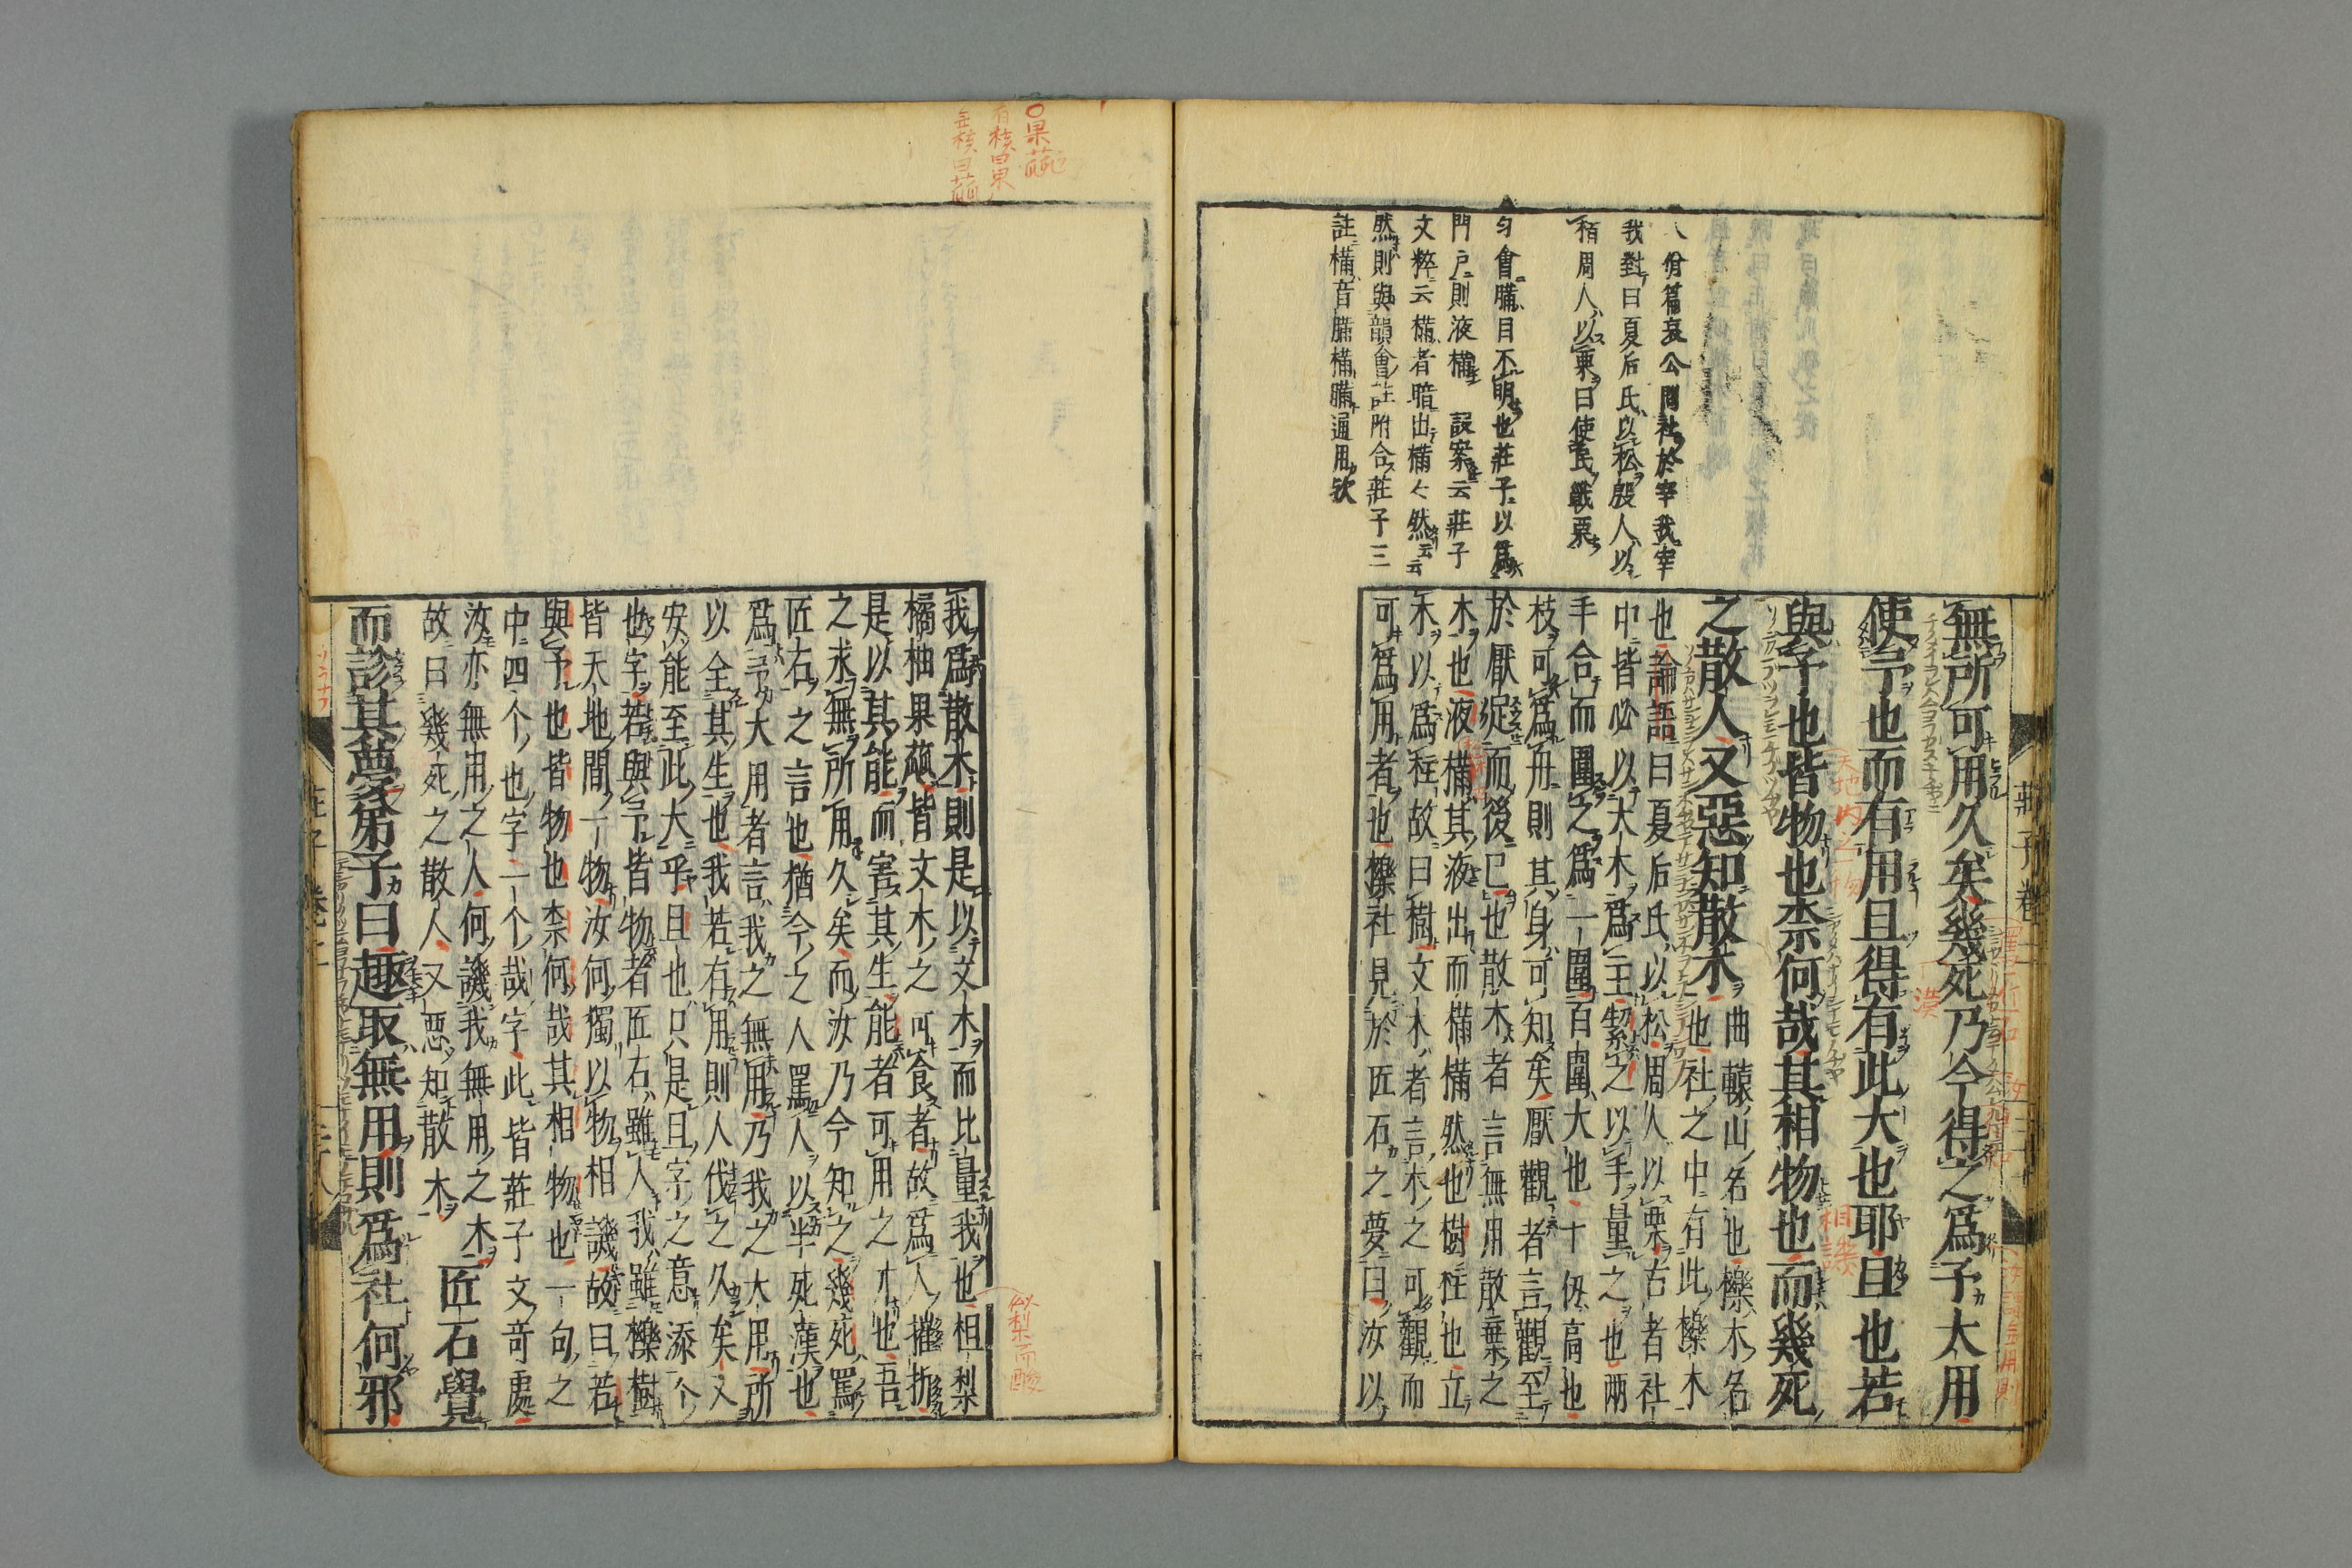 八佾篇哀公問社於宰我宰
我對曰夏后氏以松殷人以
栢周人以栗曰使民戰栗
匀會䐽目不明也莊子以爲
門戶則液樠 設案云莊子
文粹云樠者暗出樠々然云云
然則與韻會註附合莊子三
註樠音䐽樠䐽通用歟
無所可用久矣幾死乃今得之爲予大用
使予也而有用且得有此大也耶且也若
與予也皆物也柰何哉其相物也而幾死
之散人又惡知散木
曲轅山名也櫟木名
也社之中有此櫟木
也論語曰夏后氏以松周人以栗右者社
中皆必以大木爲主絜之以手量之也兩
手合而圍之爲一圍百圍大也十仭高也
枝可爲舟則其身可知矣厭觀者言觀至
於厭足而後已也散木者言無用散棄之
木也液樠其液出而樠樠然也樹柱也立
木以爲柱故曰樹文木者言木之可觀而
可爲用者也櫟社見於匠石之夢曰汝以
莊子卷二
〇果蓏
有核曰果
無核曰蓏
我爲散木則是以文木而比量我也柤梨
橘柚果蓏皆文木之可食者故爲人摧折
是以其能而害其生能者可用之才也吾
之求無所用久矣而汝乃今知之幾死罵
匠石之言也猶今之人罵人以半死漢也
爲予大用者言我之無用乃我之大用所
以全其生也我若有用則人伐之久矣又
安能至此大乎且也只是且字之意添个
也字若與予皆物者匠石雖人我雖櫟樹
皆天地間一物汝何獨以物相譏故曰若
與予也皆物也柰何哉其相物也一句之
中四个也字一个哉字此皆莊子文竒處
汝亦無用之人何譏我無用之木
故曰幾死之散人又惡知散木
匠石覺
而診其夢弟子曰趣取無用則爲社何邪
似梨而酸